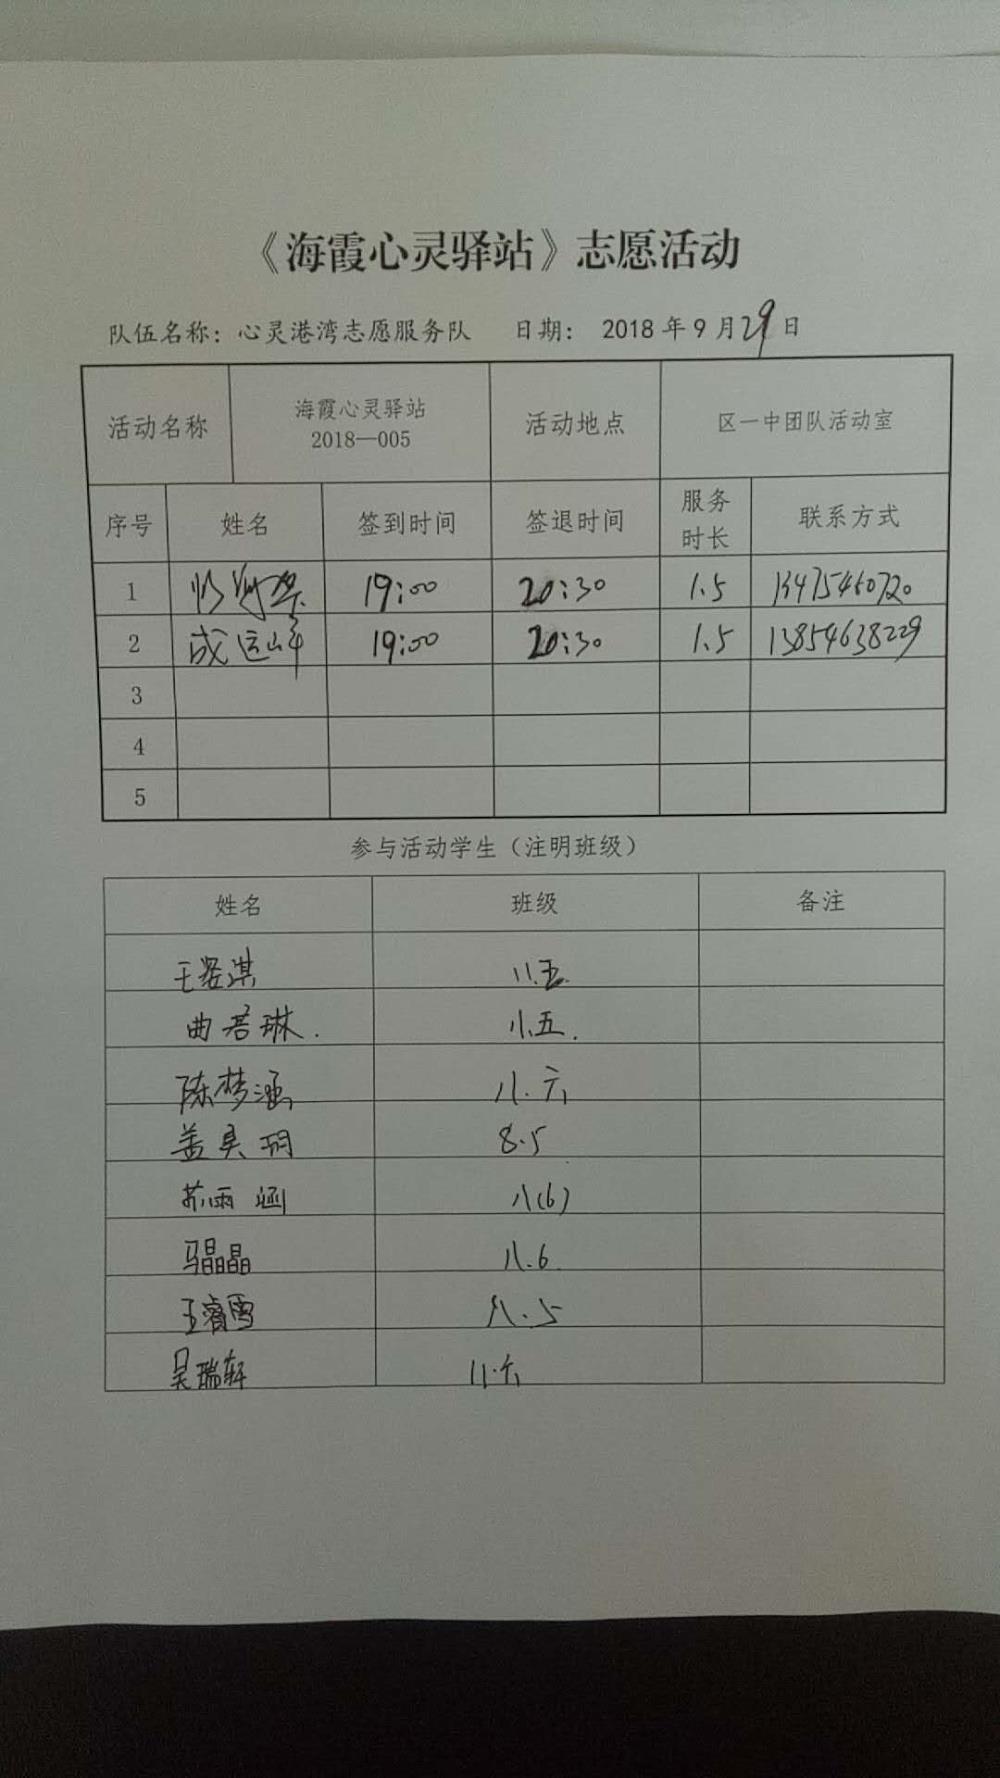 《海霞心灵驿站》志愿活动
队伍名称：心灵港湾志愿服务队 日期： 2018 年 9 月 29 日
活动名称 海霞心灵驿站 2018—005 活动地点 区一中团队活动室
序号 姓名 签到时间 签退时间 服务时长 联系方式
1 19:00 20:30 1.5 13475460720
2 成运峰 19:00 20:30 1.5 13854638229
3
4
5
参与活动学生（注明班级）
姓名 班级 备注
王姿淇 八.五
曲若琳. 八.五.
陈梦涵 八.六
盖昊玥 8.5
苏雨涵 八(6)
马晶晶 八.6.
王睿雪 八.5
吴瑞轩 八.六